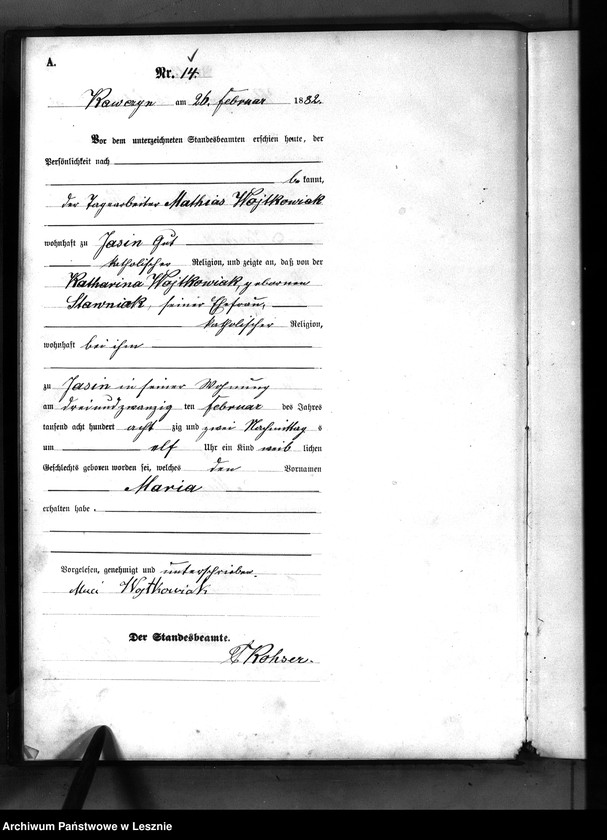 A.
Nr. 14.
Kawczyn am 26. Februar 1882.
Vor dem unterzeichneten Standesbeamten erschien heute, der
Persönlichkeit nach
be kannt,
der Tagearbeiter Mathias Wojtkowiak
wohnhaft zu Jasin Gut
katholischer Religion, und zeigte an, daß von der
Katharina Wojtkowiak, gebornen
Slawniak, seiner Ehefrau,
katholischer Religion,
wohnhaft bei ihm
zu Jasin in seiner Wohnung
am dreiundzwanzig ten Februar des Jahres
tausend acht hundert acht zig und zwei Nachmittag s
um elf Uhr ein Kind weib lichen
Geschlechts geboren worden sei, welches den Vornamen
Maria
erhalten habe.
Vorgelesen, genehmigt und unterschrieben.
Wojtkowiak
Der Standesbeamte.
Kohser.
Archiwum Państwowe w Lesznie